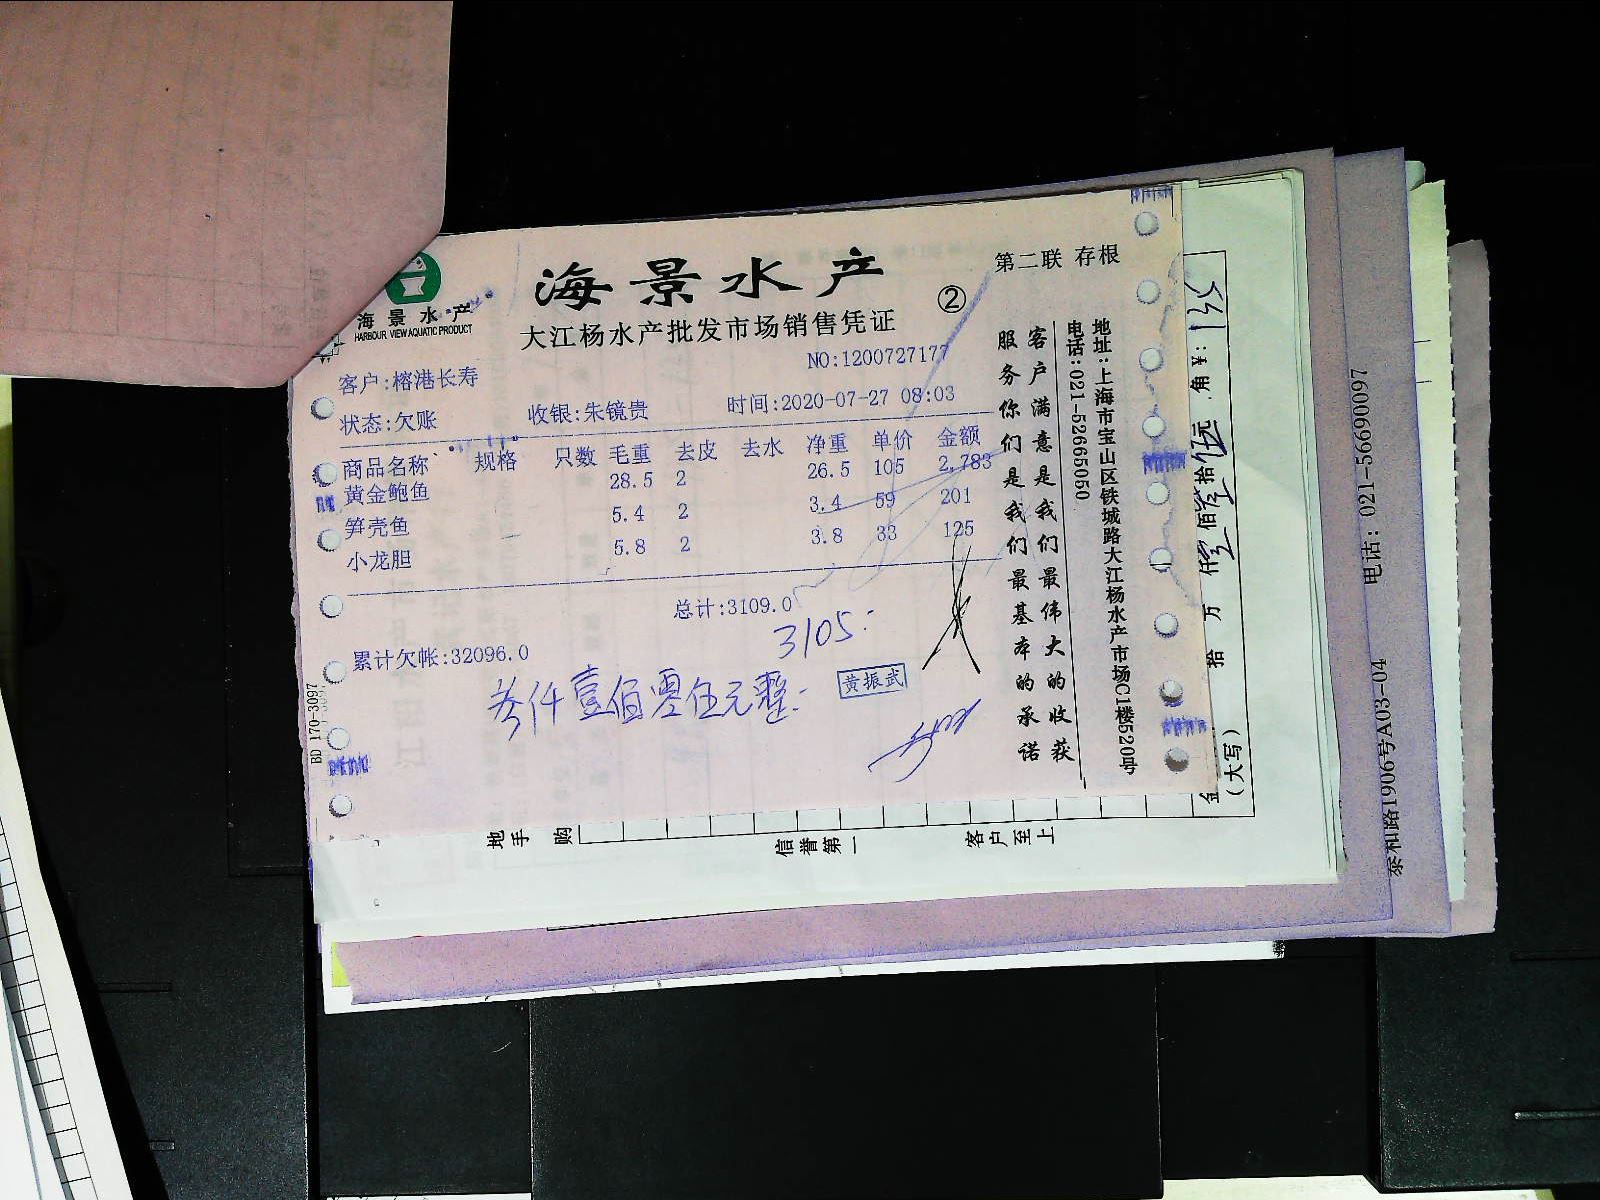 海景水产
HARBOUR VIEW AQUATIC PRODUCT
海景水产
大江杨水产批发市场销售凭证
②
第二联 存根
NO:1200727177
客户:榕港长寿
状态:欠账 收银:朱镜贵 时间:2020-07-27 08:03
商品名称 规格 只数 毛重 去皮 去水 净重 单价 金额
黄金鲍鱼 28.5 2 26.5 105 2,783
笋壳鱼 5.4 2 3.4 59 201
小龙胆 5.8 2 3.8 33 125
总计:3109.0
3105.-
累计欠帐:32096.0
叁仟壹佰零伍元整.-
黄振武
BD 170-3097
客户满意是我们最伟大的收获
服务你们是我们最基本的承诺
地址:上海市宝山区铁城路大江杨水产市场C1楼520号
电话:021-52665050
地
手
购
信誉第一
客户至上
金
(大写)
拾 万 仟 佰 拾 伍元 角 ¥: 135
泰和路1906号A03-04 电话: 021-56690097